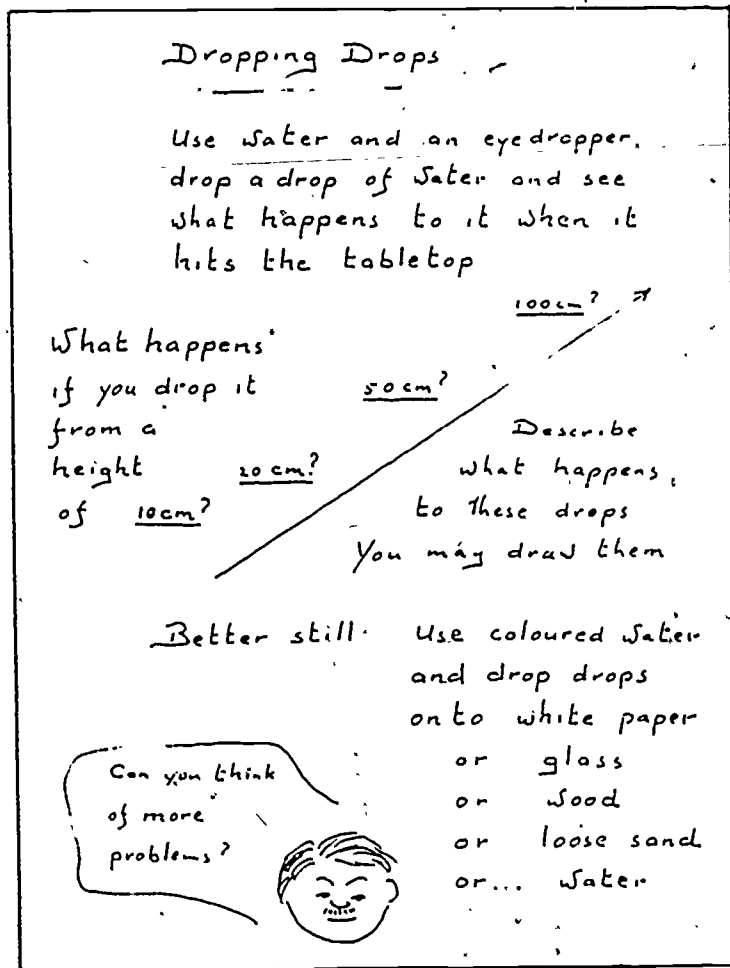 Dropping Drops
Use water and an eyedropper,
drop a drop of water and see
what happens to it when it
hits the tabletop
100cm?
What happens
if you drop it
from a
height
of 10cm?
20 cm?
50 cm?
Describe
what happens,
to these drops
You may draw them
Better still. Use coloured water
and drop drops
onto white paper
or glass
or wood
or loose sand
or... water
Can you think
of more
problems?